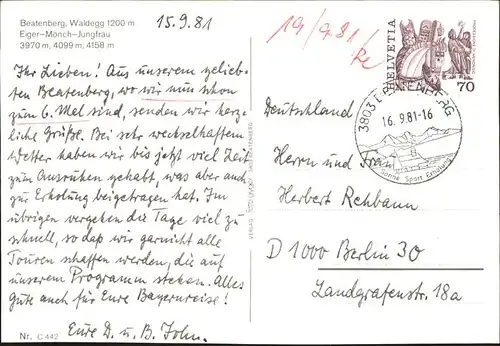 Beatenberg, Waldegg 1200 m
Eiger-Mönch-Jungfrau
3970 m, 4099 m, 4158 m
15.9.81
Ihr Lieben! Aus unserem gelieb-
ten Beatenberg, wo wir nun schon
zum 6. Mal sind, senden wir herz-
liche Grüße. Bei sehr wechselhaftem
Wetter haben wir bis jetzt viel Zeit
zum Ausruhen gehabt, was aber auch
zur Erholung beigetragen hat. Im
übrigen vergehen die Tage viel zu
schnell, so daß wir garnicht alle
Touren schaffen werden, die auf
unserem Programm stehen. Alles
Gute auch für Eure Bayernreise!
Eure D. u. B. John.
Nr. C 442
19/9.81
HELVETIA
70
3803 BEATENBERG
16.9.81-16
Sonne Sport Erholung
Deutschland
Herrn und Frau
Herbert Rehbann
D 1000 Berlin 30
Landgrafenstr. 18a